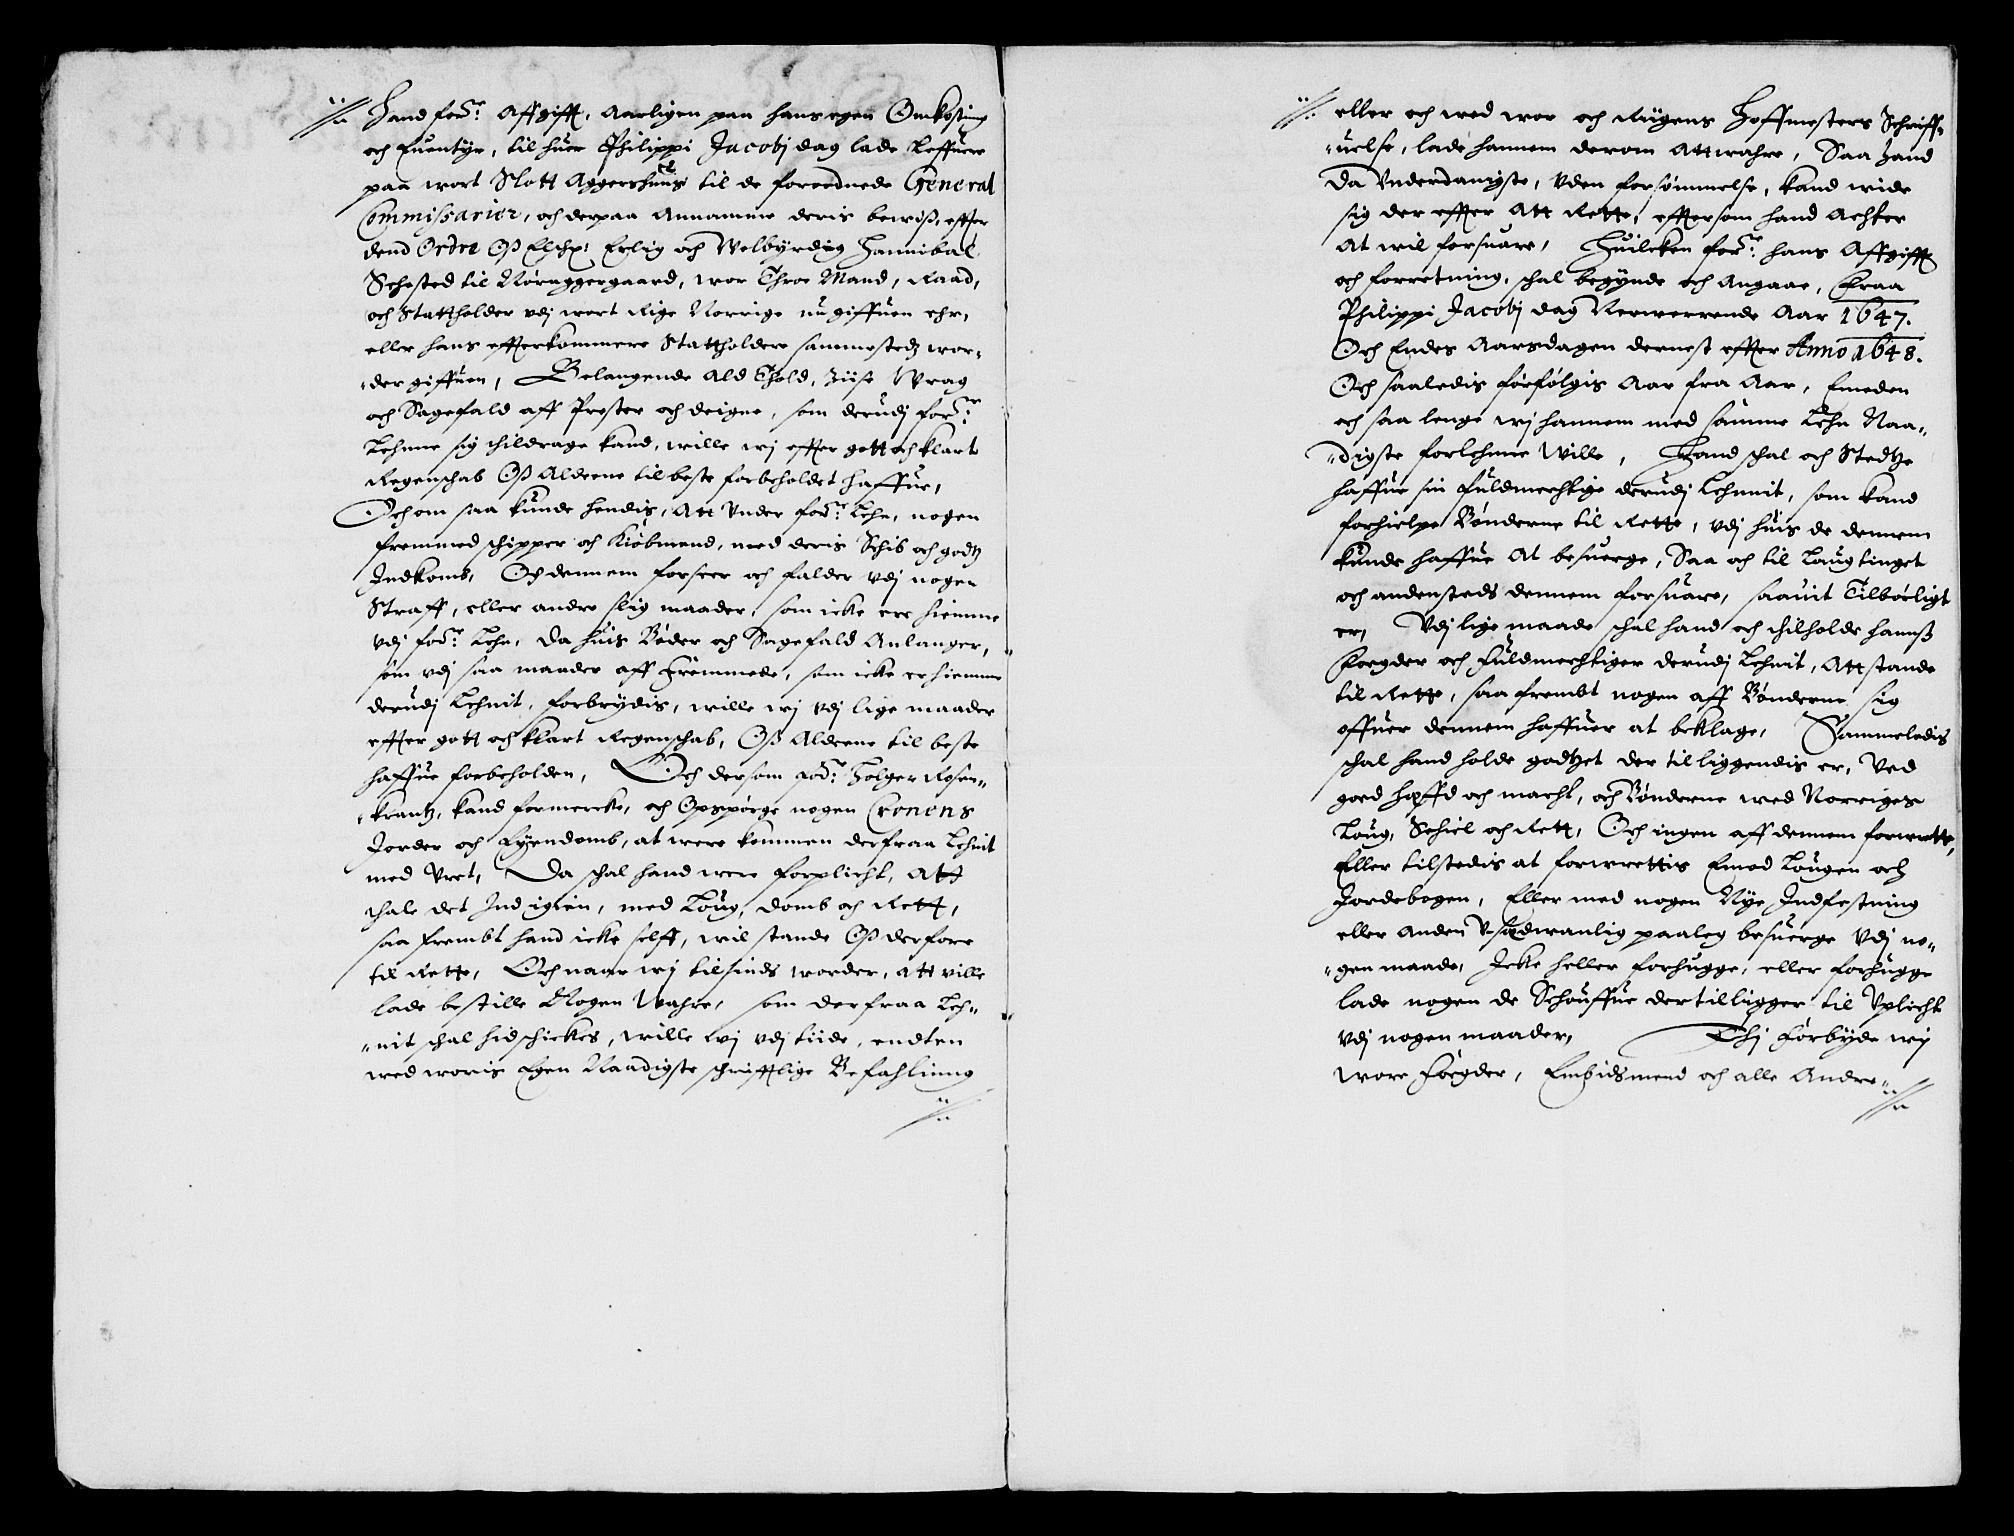 Hand forne: Affgifft, Aarligen paa hans egen Omkosting
och Euentyr, til huer Philippi Jacobj dag lade Leffuere
paa wort Slott Aggershuus til de forordnede General
Commissarier, och derpaa Annamme deris bewiß, effter
dend Ordre Oß Elschl: Erlig och Welbyrdig Hannibal
Sehested til Nøruggergaard, wor Throe Mand, Raad,
och Stattholder vdj wort Rige Norrige nu giffuen ehr,
eller hans effterkommere Stattholdere sammestedz wor-
der giffuen, Belangende Ald Thold, Ziise Wrag
och Sagefald aff Prester och deigne, som derudj forne:
Lehnne sig tildrage kand, wille wj effter gott och klart
Regenschab Oß Alderne til beste forbeholdet haffue,
Och om saa kunde hendis, Att Vnder forne: Lehn, nogen
fremmed schipper och Kiøbmend, med deris Schib och godtz
Indkomb, Och dennem forseer och falder vdj nogen
Straff, eller andre slig maader, som icke ere hiemme
vdj forne: Lehn, Da huis Bøder och Sagefald Anlanger,
som vdj saa maader aff Fremmede, som icke er hiemme
derudj Lehnit, forbrydis, wille wj vdj lige maader
effter gott och klart Regenschab, Oß Alderne til beste
haffue forbeholden, Och dersom forne: Holger Rosen-
krantz, kand formercke, och Opspørge nogen Cronens
Jorder och Eyendomb, at were kommen derfraa Lehnit
med Vret, Da schal hand were forplicht, Att
thale det Ind igien, med Loug, domb och Rett,
saa frembt hand icke self, wil stande Oß derfore
til Rette, Och naar wj tilsinds worder, att wille
lade bestille Nogen Wahre, som derfraa Leh-
nit schal hidschickes, wille wj vdj tiide, endten
wed woris Egen Naadigste schrifftlige Befahlinng
eller och wed wor och Rigens Hoffmesters Schriff-
uelse, lade hannem derom Attwahre, Saa Hand
Da Vnderdanigste, Vden forsømmelse, kand wide
sig der effter Att Rette, efftersom hand Achter
At wil forsuare, Huilcken forne: hans Affgifft
och forretning, schal begynde och Angaae, Fraa
Philippi Jacobj dag Nerwerrende Aar 1647.
Och Endes Aarsdagen dernest effter Anno 1648.
Och saaledis forfølgis Aar fra Aar, Emeden
och saa lenge wj hannem med samme Lehn Naa-
digste forlehnne Wille, Hand schal och Stedtze
haffue sin fuldmechtige derudj Lehnnit, som kand
forhielpe Bønderne til Rette, vdj huis de dennem
kunde haffue At besuerge, Saa och til Laugtinget
och andensteds dennem forsuare, saauit Tilbørligt
er, Vdj lige maade schal hand och tilholde hannß
Foegder och Fuldmechtiger derudj Lehnit, Att stande
til Rette, saa frembt nogen aff Bønderne sig
offuer dennem haffuer at beklage, Sammeledis
schal hand holde godtzet der til liggendis er, Ved
goed hæffd och macht, och Bønderne wed Norriges
Loug, Schiel och Rett, Och ingen aff dennem forurette,
Eller tilstedis at forwrettis Emod Lougen och
Jordebogen, Eller med nogen Nye Indfestning
eller Anden V-sædwanlig paaleg besuerge Vdj no-
gen maade, Icke heller forhugge, eller forhugge
lade nogen de Schouffue dertil ligger til Vplicht
vdj nogen maader, Thj forbyde wij
wore Foegder, Embidsmend och alle Andre